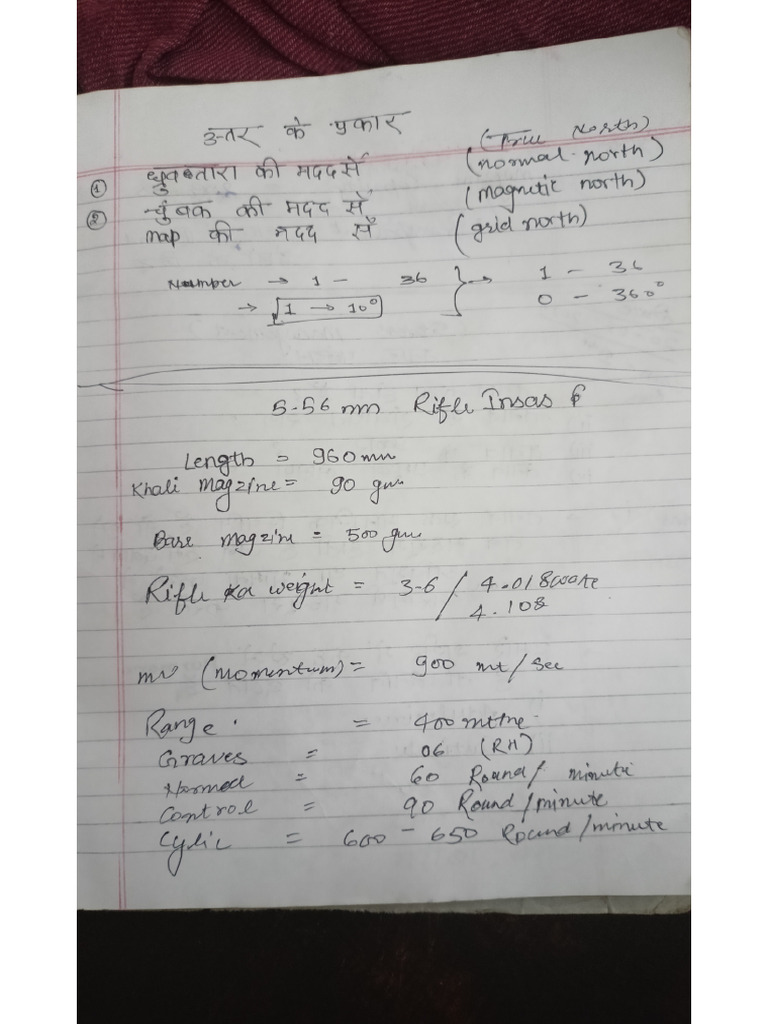 उत्तर के प्रकार
(True North)
① ध्रुवतारा की मदद सें (normal north)
② चुंबक की मदद सें (magnetic north)
map की मदद सें (grid north)
Number → 1 - 36 } → 1 - 36
→ 1 → 10° 0 - 360°
5.56 mm Rifle Insas
Length = 960 mm
Khali magzine = 90 gm
Bare magzine = 500 gm
Rifle ka weight = 3.6 / 4.018
4.108
mv (momentum) = 900 mt/sec
Range = 400 mttre
Graves = 06 (RH)
Normal = 60 Round/ minute
Control = 90 Round/minute
Cylic = 600 - 650 Round/minute